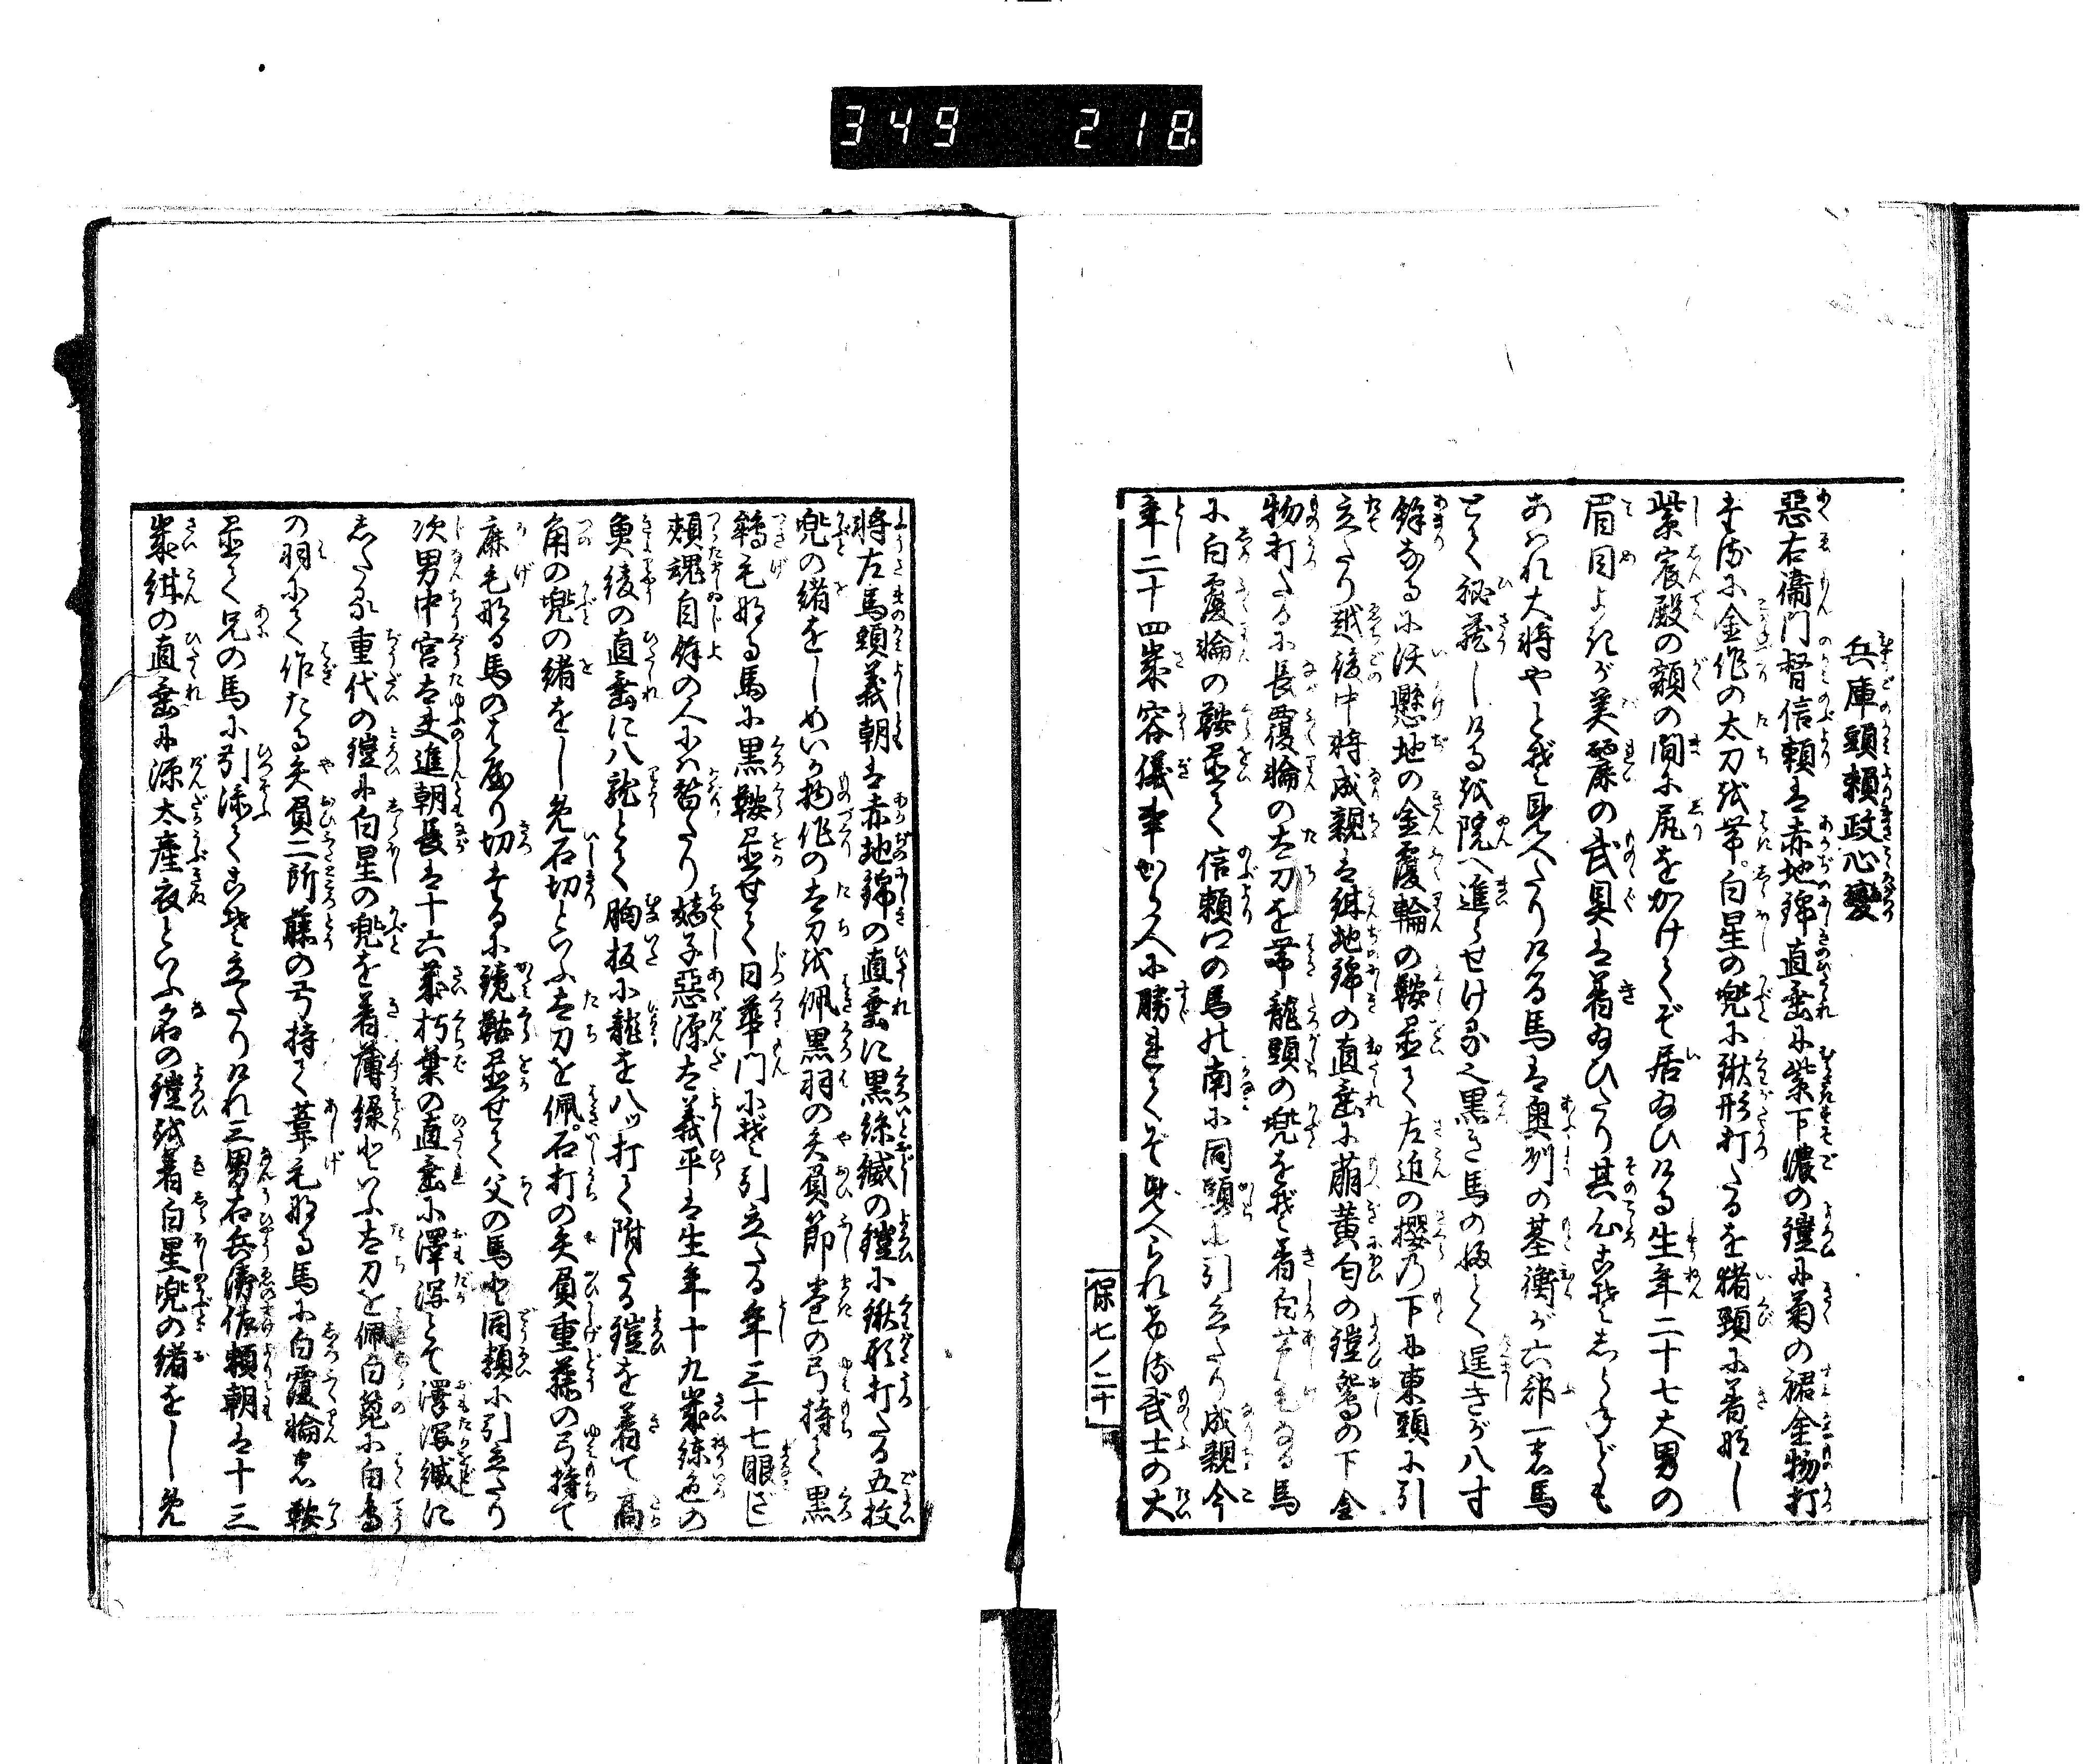 349 218
兵庫頭頼政心變
惡右衞門督信頼は赤地錦直垂に紫下濃の鎧に菊の裾金物打
金作の太刀を帯白星の兜に鍬形打たるを猪頸に着
紫宸殿の額の間に尻をかけてぞ居給ひける生年二十七大男の
眉目よきが美麗の武具は着給ひたり其心こそしらねども
あはれ大将やとぞ見へたりける馬は奥州の基衡が六郡一の馬
とて秘藏しけるを院へ進らせける也黒き馬の
餘なるに沃懸地の金覆輪の鞍置て左近の櫻の下に東頭に引
立たり越後中将成親は紺地錦の直垂に萠黄匂の鎧鴛の下金
物打たるに長覆輪の太刀を帯龍頭の兜をぞ着白芦毛なる馬
に白覆輪の鞍置て信頼の馬の南に同頭に引立たり成親今
年二十四歳容儀事がら人に勝れてぞ見へられける武士の大
保七ノ二十
将左馬頭義朝は赤地錦の直垂に黒絲縅の鎧に鍬形打たる五枚
兜の緒をしめいか物作の太刀を佩黒羽の矢負節巻の弓持て黒
鶴毛なる馬に黒鞍置せて日華門にぞ引立たる年三十七眼ざし
頬魂自餘の人には替たり嫡子惡源太義平は生年十九歳練色の
魚綾の直垂に八龍とて胸板に龍を八ッ打て附たる鎧を着て高
角の兜の緒をしめ石切といふ太刀を佩石打の矢負重藤の弓持て
鹿毛なる馬の切たるに鏡鞍置せて父の馬と同頭に引立たり
次男中宮太夫進朝長は十六歳朽葉の直垂に澤瀉とて澤瀉縅に
したる重代の鎧に白星の兜を着薄緑といふ太刀を佩白箆に白鳥
の羽にて作たる矢負二所藤の弓持て葦毛なる馬に白覆輪の鞍
置て兄の馬に引添てこそ立たりけれ三男右兵衞佐頼朝は十三
歳紺の直垂に源太産衣といふ名の鎧を着白星兜の緒をしめ